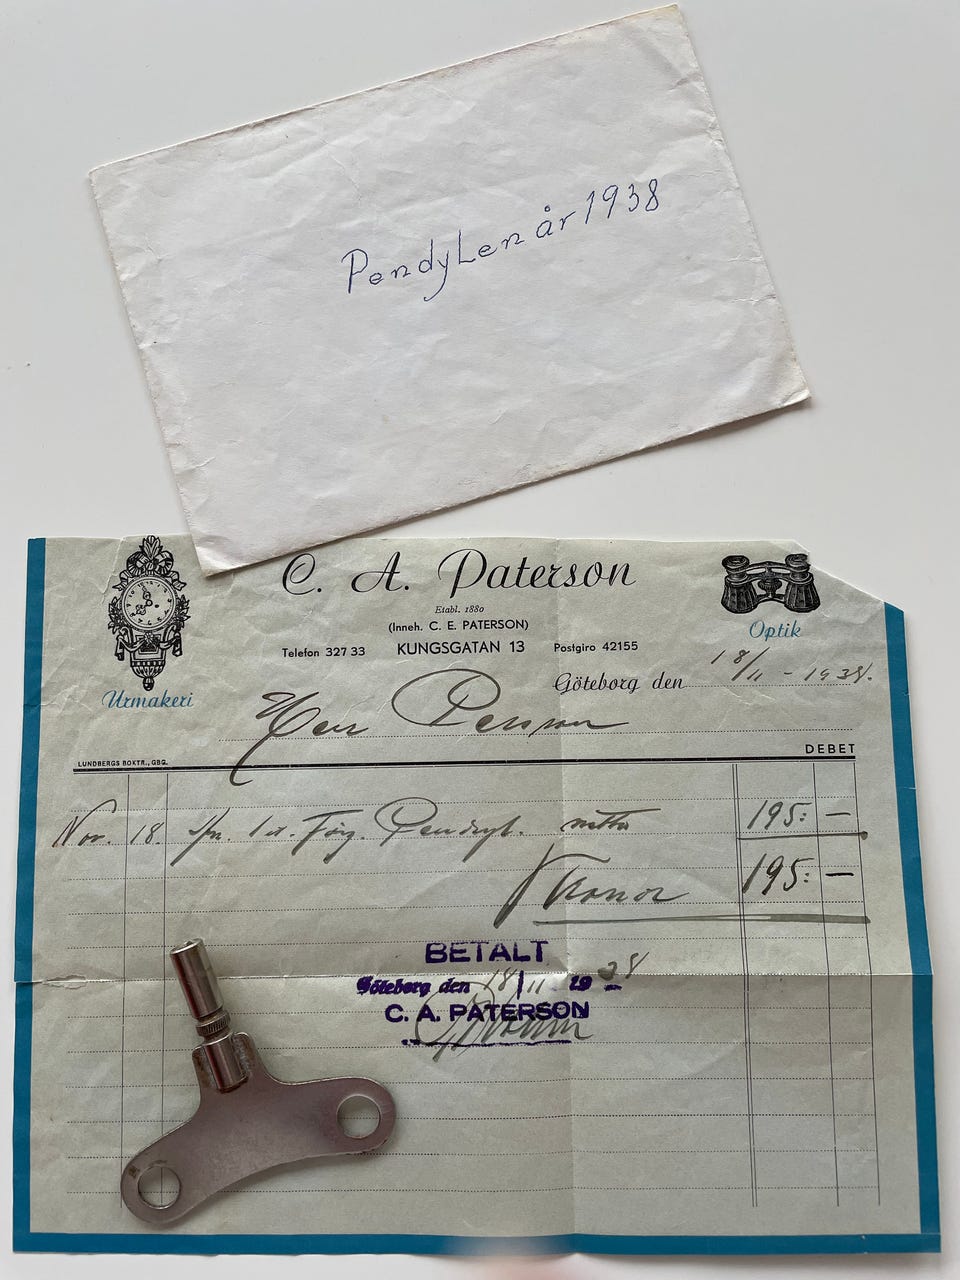 Pendylen år 1938
C. A. Paterson
Etabl. 1880
(Inneh. C. E. PATERSON)
Telefon 327 33 KUNGSGATAN 13 Postgiro 42155
Urmakeri
Optik
Göteborg den 18/11 - 1938.
Herr Persson
DEBET
LUNDBERGS BOKTR., GBG.
Nov. 18. 1 st. Förg. Pendyl. 195: —
Kronor 195: —
BETALT
Göteborg den 18/11 1938
C. A. PATERSON